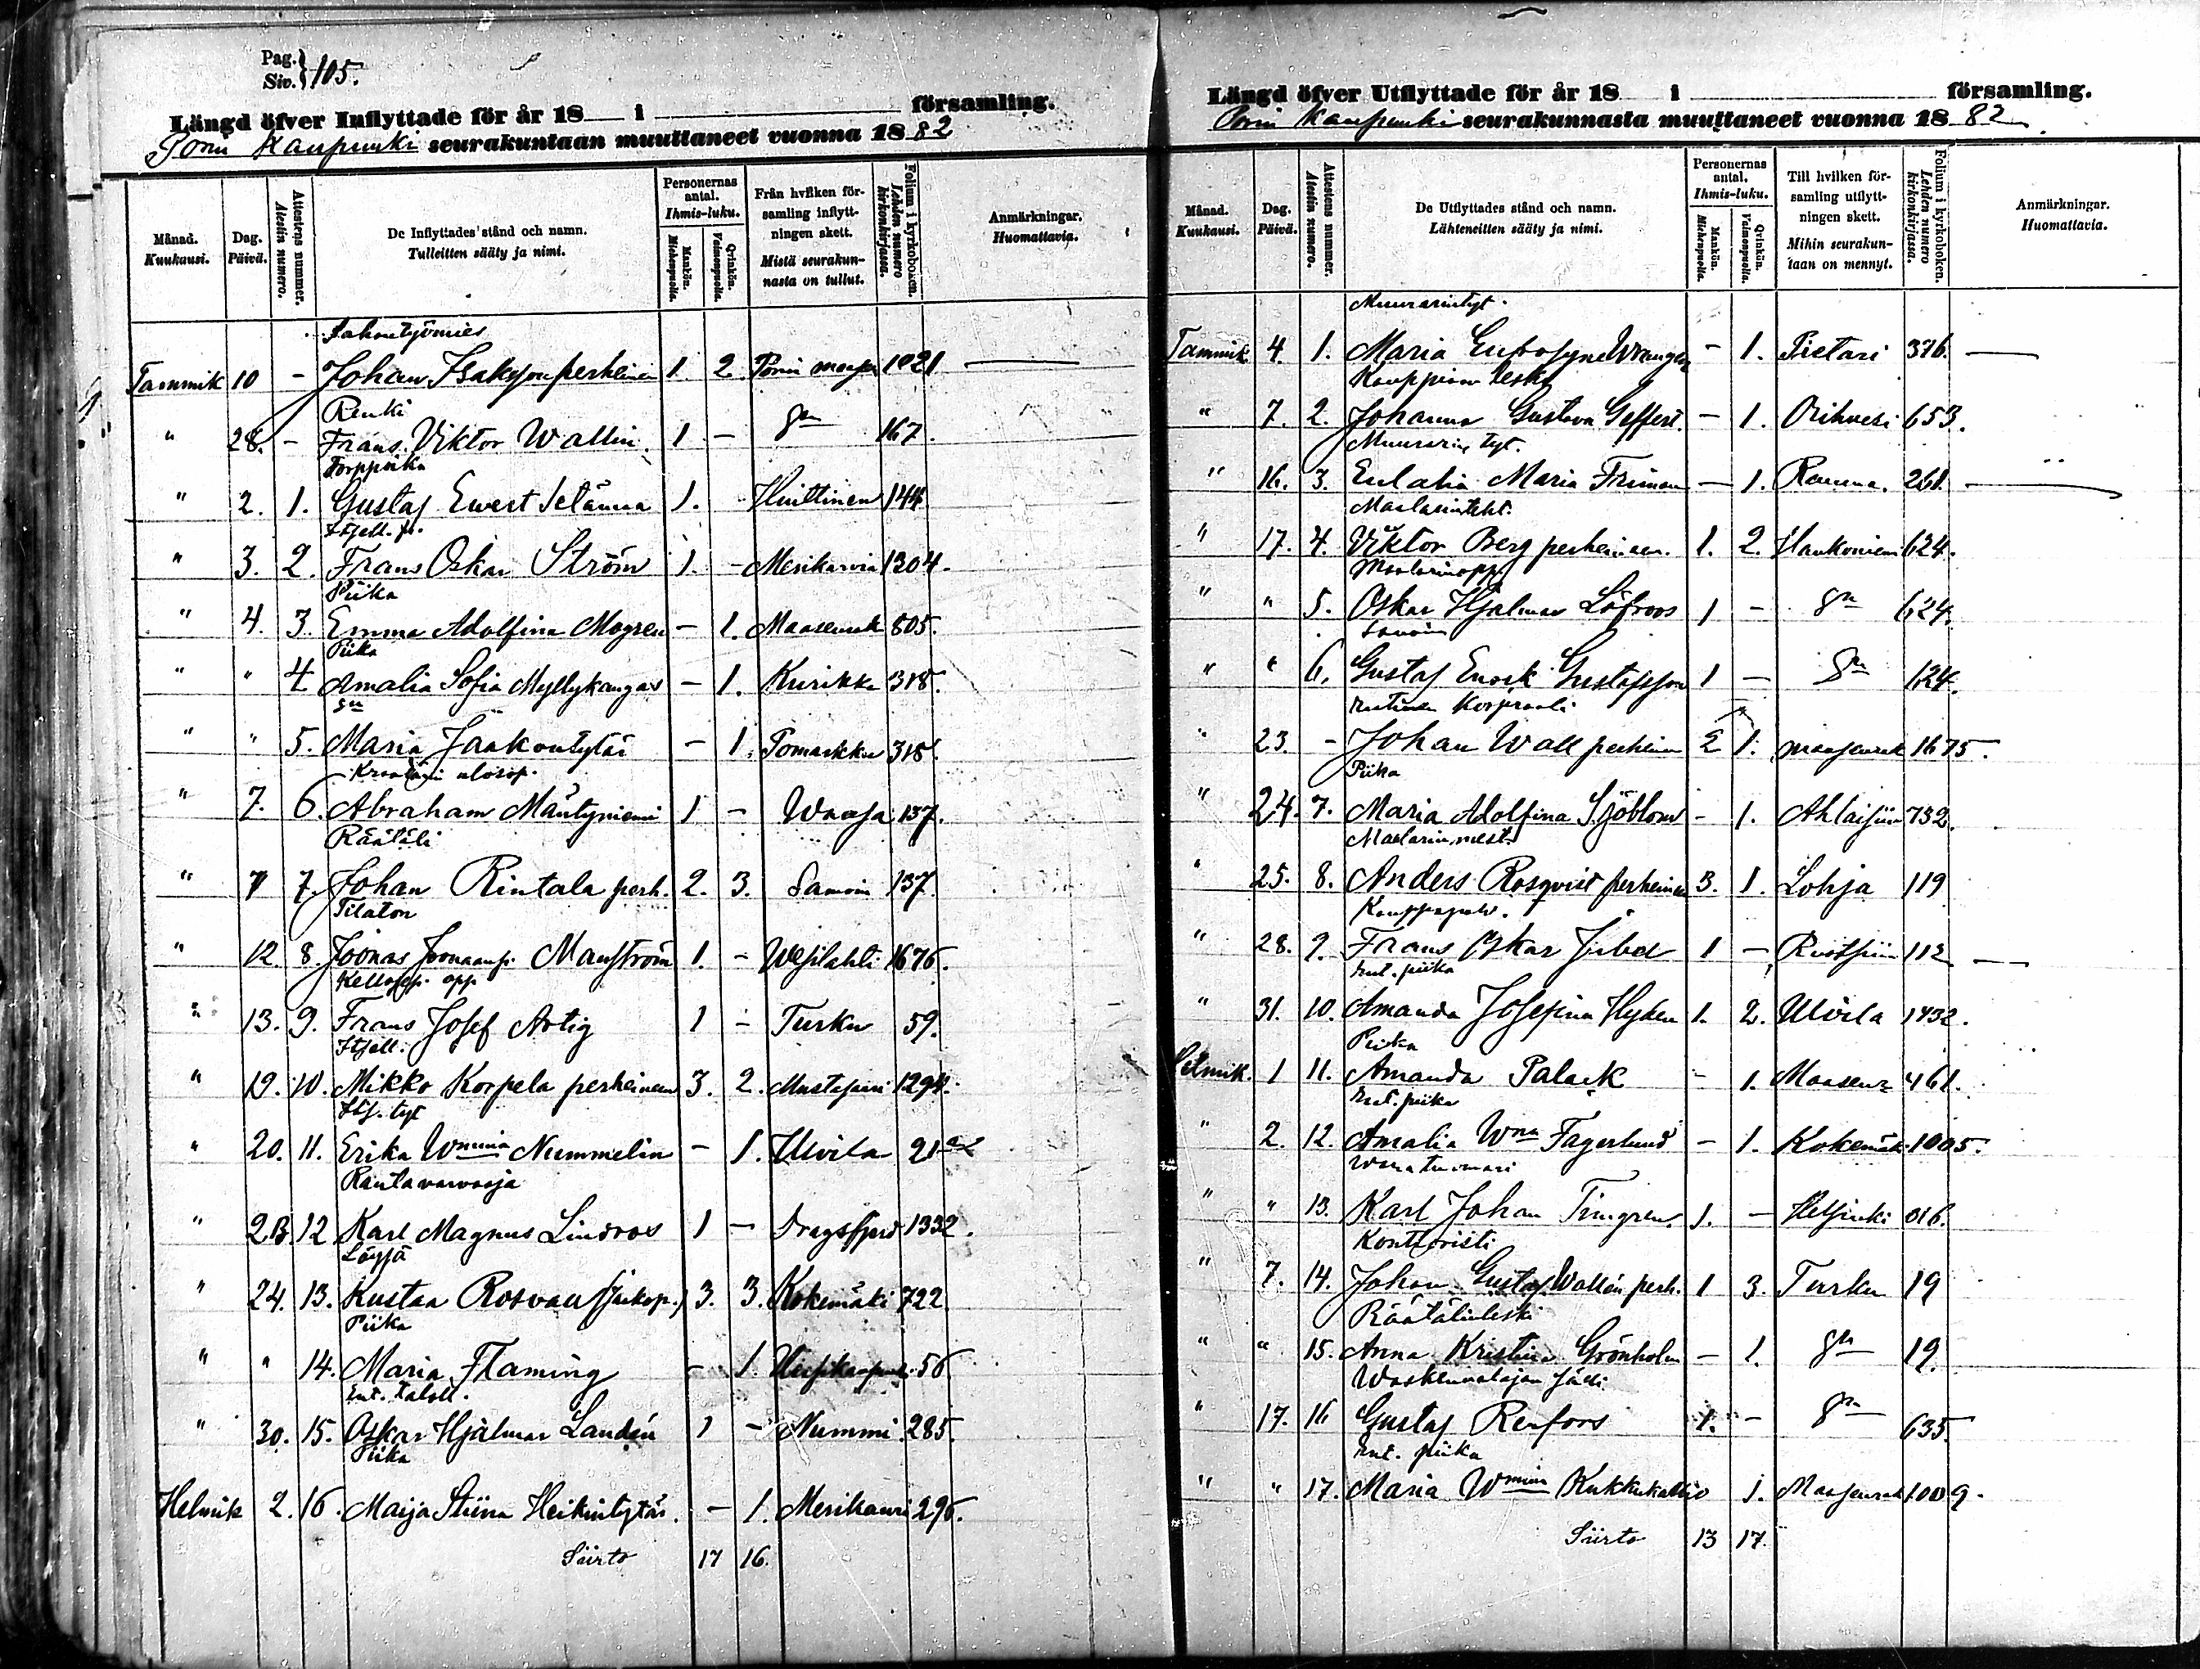 Pag. Siv. 105.
Längd öfver Inflyttade för år 18 i församling.
Porin Kaupunki seurakuntaan muuttaneet vuonna 1882
Månad. Kuukausi.
Dag. Päivä.
Attestens nummer. Atestin numero.
De Inflyttades stånd och namn. Tulleitten sääty ja nimi.
Personernas antal. Ihmis-luku.
Mankön. Miehenpuolia.
Qvinkön. Vaimonpuolia.
Från hvilken församling inflyttningen skett. Mistä seurakunnasta on tullut.
Folium i kyrkoboken. Lehden numero kirkonkirjassa.
Anmärkningar. Huomattavia.
Tammik 10 - Johan Isaksson perheineen 1. 2. Porin 1021
Renki
" 28. - Frans Viktor Wallin. 1 - 167.
Torppoika
" 2. 1. Gustaf Ewert Setänna 1. Huittinen 144.
" 3. 2. Frans Oskar Ström 1. - Merikarvia 1304.
Piika
" 4. 3. Emma Adolfina Mogren - 1. Maaseurak 805.
Piika
" " 4. Amalia Sofia Myllykangas - 1. Kurikka 318.
" " 5. Maria Jaakontytär - 1. Pomarkku 318.
" 7. 6. Abraham Mäntyniemi 1 - Waasa 137.
Räätäli
" 7 7. Johan Rintala perh. 2. 3. Samoin 137.
Tilaton
" 12. 8. Joonas Joonaanp. Manström 1. - Wesilahti 1676.
Kellosep. opp.
" 13. 9. Frans Josef Artig 1 - Turku 59.
Itsell.
" 19. 10. Mikko Korpela perheineen 3. 2. Mustasaari 1294.
Its. tyt
" 20. 11. Erika Wmina Nummelin - 1. Ulvila 21
" 23. 12 Karl Magnus Lindros 1 - Dragsfjerd 1332.
" 24. 13. Kustaa Rosvall 3. 3. Kokemäki 722
Piika
" " 14. Maria Flaming - 1. 56
Ent. taloll.
" 30. 15. Oskar Hjalmar Landén 1 - Nummi 285.
Piika
Helmik 2. 16. Maija Stiina Heikintytär. - 1. Merikarvi 296.
Siirto 17 16.
Längd öfver Utflyttade för år 18 i församling.
Porin Kaupunki seurakunnasta muuttaneet vuonna 1882
Månad. Kuukausi.
Dag. Päivä.
Attestens nummer. Atestin numero.
De Utflyttades stånd och namn. Lähteneitten sääty ja nimi.
Personernas antal. Ihmis-luku.
Mankön. Miehenpuolia.
Qvinkön. Vaimonpuolia.
Till hvilken församling utflyttningen skett. Mihin seurakuntaan on mennyt.
Folium i kyrkoboken. Lehden numero kirkonkirjassa.
Anmärkningar. Huomattavia.
Muurarintyt.
Tammik 4. 1. Maria Eufrosyne - 1. Pietari 376.
Kauppiaan leski
" 7. 2. Johanna Gustava Geffert. - 1. Orihvesi 653.
Muurarin tyt.
" 16. 3. Eulalia Maria Friman - 1. Rauma. 261.
" 17. 4. Viktor Berg perheineen. 1. 2. Hankoniemi 624.
Maalarinopp.
" " 5. Oskar Hjalmar Löfroos 1 - 624.
Samoin
" " 6. Gustaf Enock Gustafsson 1 - 624.
entinen Korpraali
" 23. - Johan Wall perheineen 2 1. maaseurak 1675.
Piika
" 24. 7. Maria Adolfina Sjöblom - 1. Ahlaisiin 732.
Maalarinmest.
" 25. 8. Anders Rosqvist perheineen 3. 1. Lohja 119
Kauppapalv.
" 28. 9. Frans Oskar 1 - 112
Ent. piika
" 31. 10. Amanda Josefina Hyden 1. 2. Ulvila 1432.
Piika
Helmik. 1 11. Amanda Palack - 1. Maaseur 461.
Ent. piika
" 2. 12. Amalia Wna Fagerlund - 1. Kokemäk 1005.
" " 13. Karl Johan Timgren. 1. - Helsinki
Konttoristi
" 7. 14. Johan Gustaf Wallén perh. 1 3. Turku 19
Räätälinleski
" " 15. Anna Kristina Grönholm - 1. 19.
" 17. 16 Gustaf Renfors 1. - 635.
Ent. piika
" " 17. Maria Wmina Kukkukallio 1. Maaseurak 1009.
Siirto 13 17.